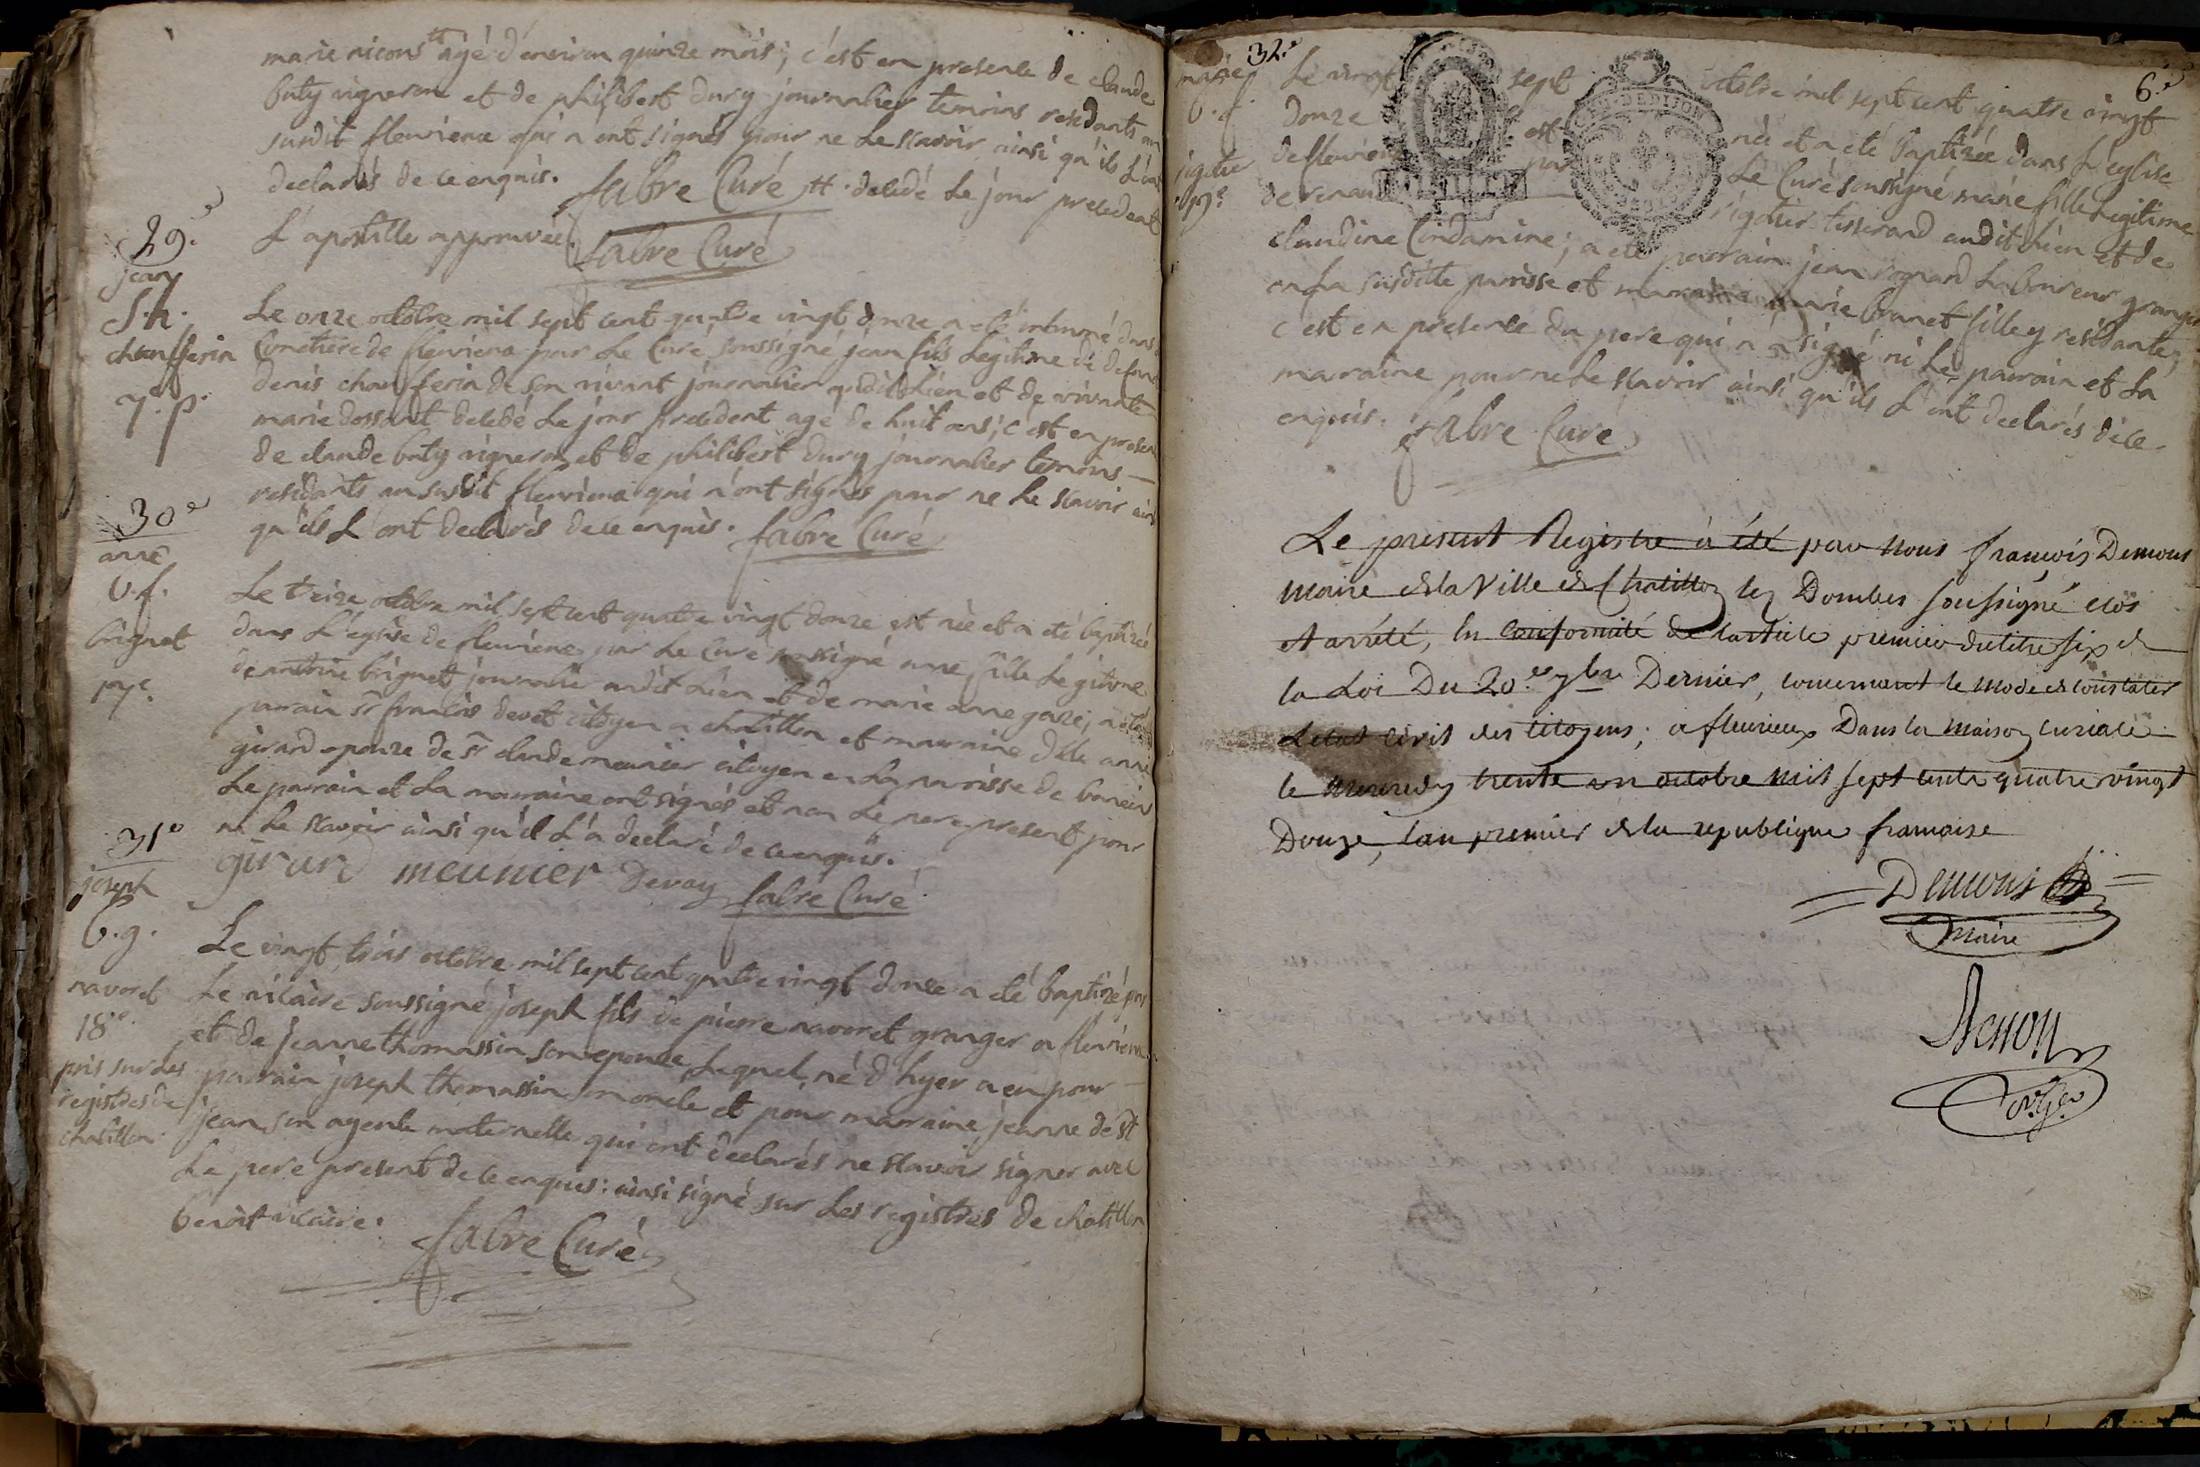 marie nicous tt agé d'environ quinze mois; c'est en presence de claude
buty vigneron et de philibert dury journalier temoins residants au
susdit fleurieux qui n'ont signés pour ne le scavoir ainsi qu'ils l'ont
declarés de ce enquis. fabre Curé tt. decedé le jour precedent
L'apostille approuvée. fabre Curé
29.e
jean
S.h.
chaufferin
7.e p.
Le onze octobre mil sept cent quatre vingt donze a eté inhumé dans
Cimetiere de fleurieux par Le Curé soussigné jean fils Legitime de defunt
denis chaufferin de son vivant journalier audit Lieu et de vivante
marie dossant, decedé Le jour precedent agé de huit ans; c'est en presen
de claude buty vigneron et de philibert dury journalier temoins
residants au susdit fleurieux qui n'ont signés pour ne le scavoir ains
qu'ils L'ont declarés de ce enquis. fabre Curé
30.e
anne
b.f.
brignet
17.e
Le treize octobre mil sept cent quatre vingt donze est née et a eté baptizée
dans L'eglise de fleurieux par Le Curé soussigné anne fille Legitime
de antoine brignet journalier audit Lieu et de marie anne gaze; a eté
parrain sr francois devet citoyen a chatillon et marraine dlle anne
girard epouze de sr claude meunier citoyen en La parrisse de baneins
Le parrain et La marraine ont signés et non Le pere present pour
ne Le scavoir ainsi qu'il L'a declaré de ce enquis.
girard meunier Devay fabre Curé
31.e
joseph
b.g.
navoret
18.e
pris sur les
registres de
chatillon.
Le vingt trois octobre mil sept cent quatre vingt donze a eté baptizé par
Le vicaire soussigné joseph fils de pierre navoret granger a fleurieux
et de jeanne thomassin son epouze Lequel, né d'hyer a eu pour
parrain joseph thomassin son oncle et pour marraine jeanne de st
jean son ayeule maternelle qui ont declarés ne scavoir signer avec
Le pere present de ce enquis: ainsi signé sur Les registres de chatillon
benoit vicaire. fabre Curé
32.e
6.e
marie
b.f.
19.e
Le vingt sept octobre mil sept cent quatre vingt
donze est née et a eté baptizée dans L'eglise
de fleurieux par Le Curé soussigné marie fille Legitime
de renau rigotier tisserand audit Lieu et de
claudine Condamine; a eté parrain jean rognard Laboureur granger
en La susditte parrisse et marraine marie brunet fille y residante;
c'est en presence du pere qui n'a signé ni Le parrain et La
marraine pour ne Le scavoir ainsi qu'ils L'ont declarés de ce
enquis. fabre Curé
Le present Registre à été par nous françois Demons
Maire de la Ville de Chatillon les Dombes soussigné clos
et arrêté, en conformité de l'article premier du titre six de
la Loi Du 20.e 7bre Dernier, concernant le mode de constater
L'etat civil des citoyens; a fleurieux Dans la maison curiale
le mercredy trente un octobre mil sept cents quatre vingt
Douze, l'an premier de la republique francaise
Demons
Maire